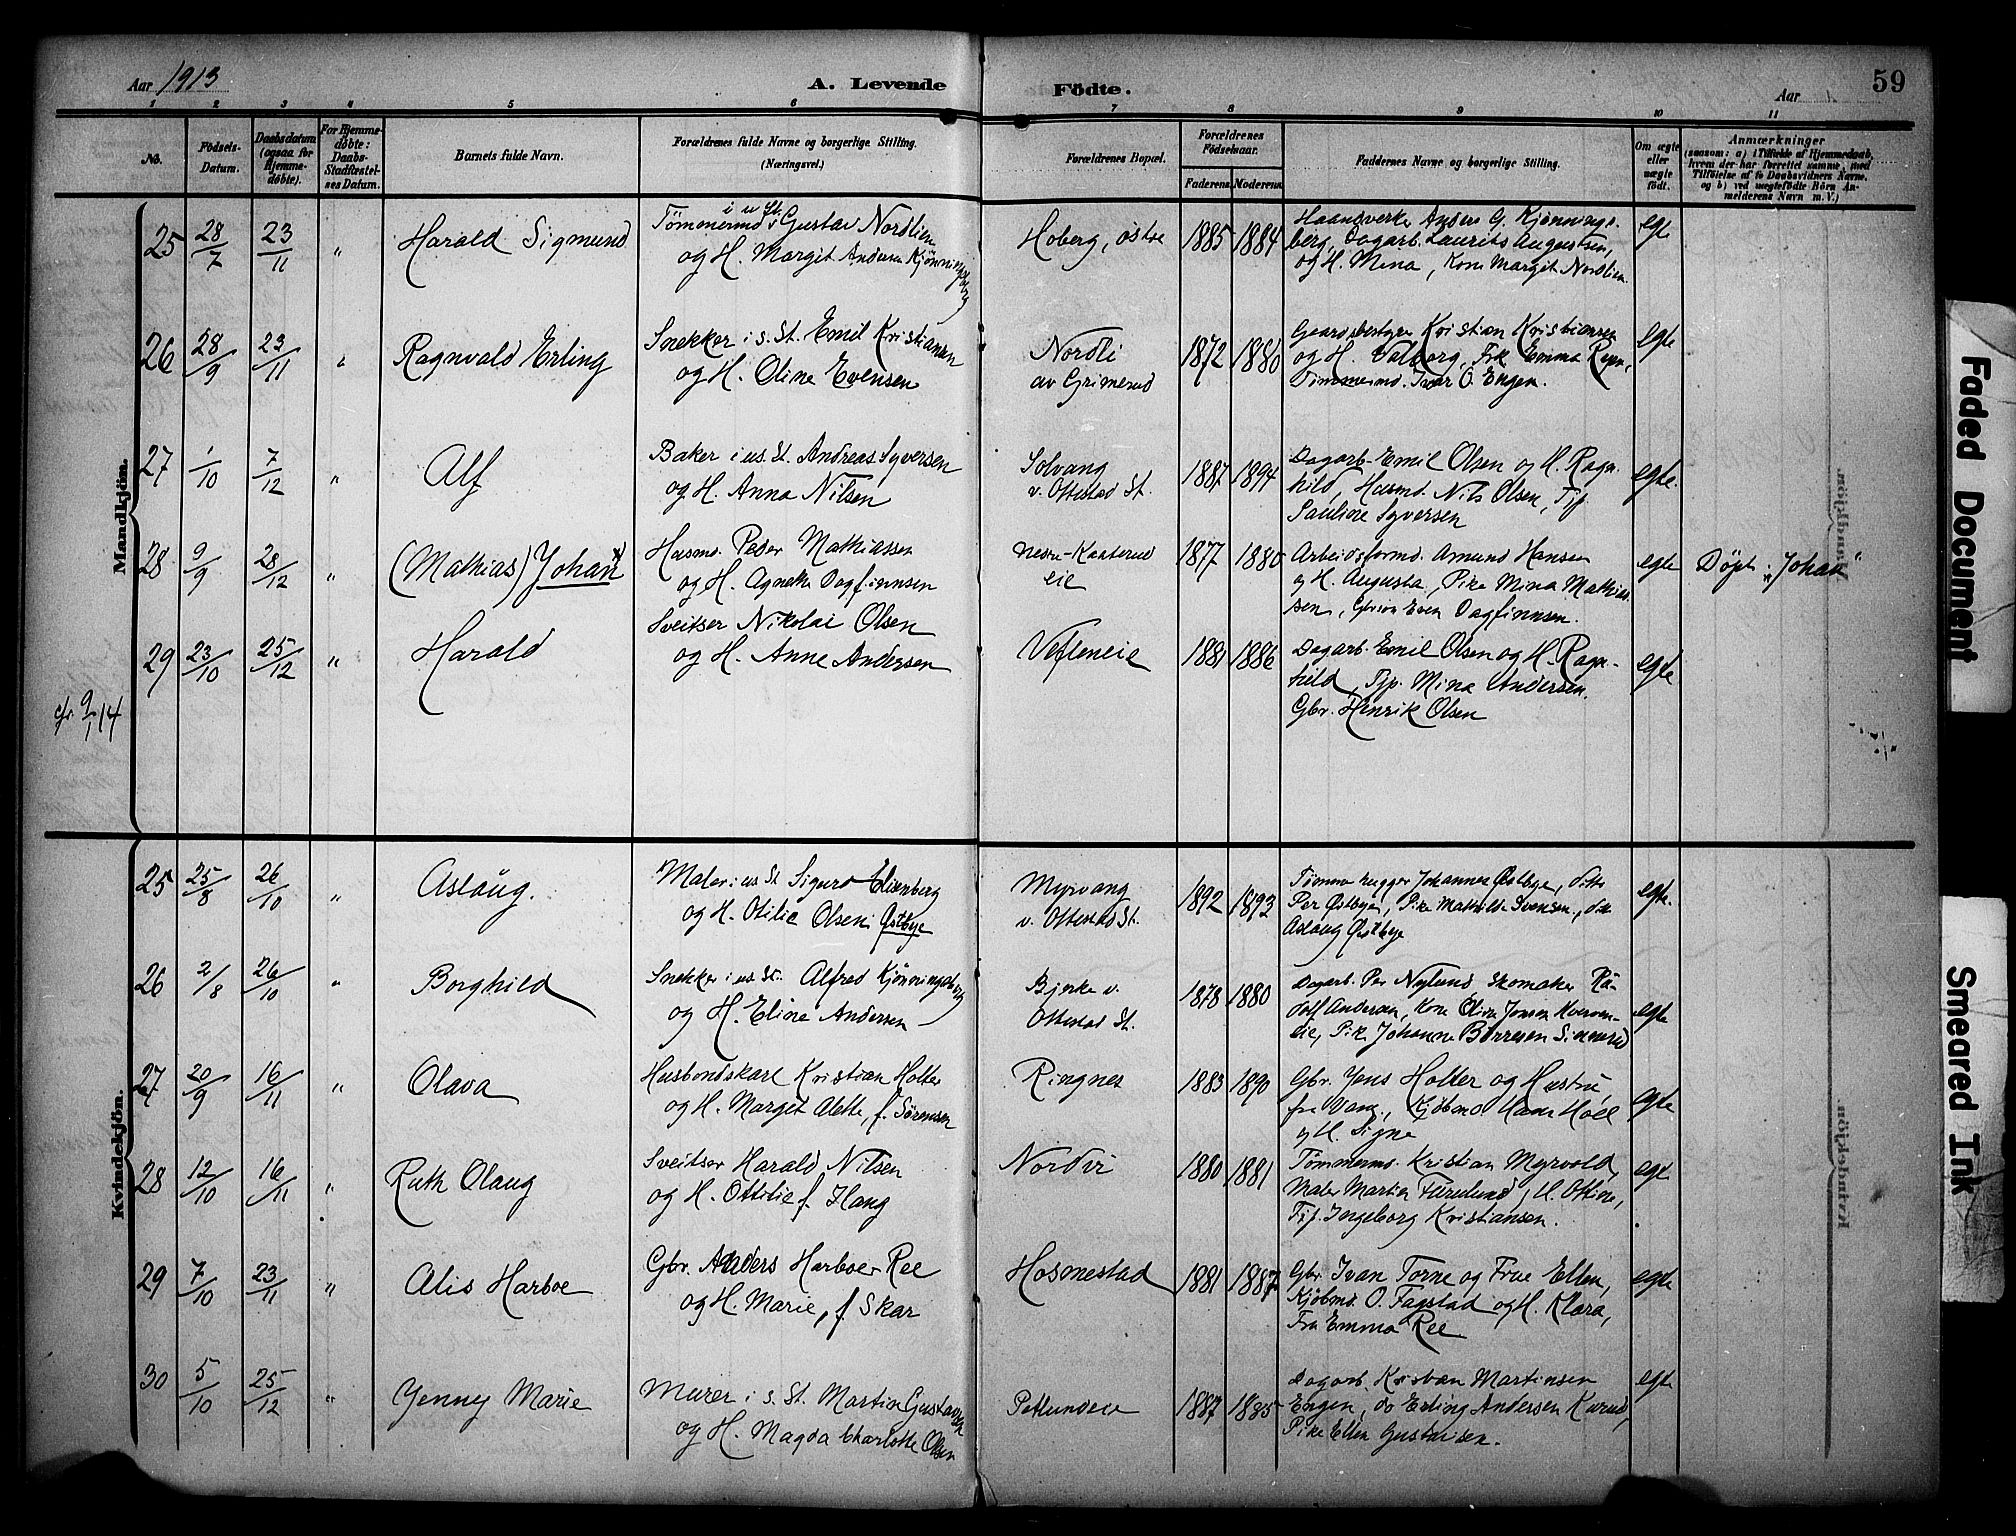 Aar 1913
A. Levende Födte.
Aar
59
1 2 3 4 5 6 7 8 9 10 11
No.
Födsels-Datum.
Daabsdatum (ogsaa for Hjemme-döbte).
For Hjemme-döbte: Daabs-Stadfæstel-ses Datum.
Barnets fulde Navn.
Forældrenes fulde Navne og borgerlige Stilling. (Næringsvei.)
Forældrenes Bopæl.
Forældrenes Födselsaar.
Faderens. Moderens.
Faddernes Navne og borgerlige Stilling.
Om ægte eller uægte födt.
Anmærkninger
(saasom: a) i Tilfælde af Hjemmedaab, hvem der har forrettet samme, med Tilföielse af to Daabsvidners Navne, og b) ved uægtefödte Börn An-melderens Navn m. V.)
Mandkjön.
25 28/7 23/11 " Harald Sigmund
Tømmermd i u. St. Gustav Nordlien
og H. Margit Andersen Kjønningsberg
Hoberg, østre 1885 1884
Haandverker Anders G. Kjønnings-
berg, Dagarb. Laurits Augustsen,
og H. Mina, Kone Margit Nordlien
egte
26 28/9 23/11 " Ragnvald Erling
Snekker i s. St. Emil Kristiansen
og H. Oline Evensen
Nordli
av Grimerud
1872 1880
Gaardsbestyrer Kristian Kristiansen
og H. Valborg, Frk Emma
Tømmermd. Ivar O. Engen.
egte
27 1/10 7/12 " Alf
Baker i us. St. Andreas Syversen
og H. Anna Nilsen
Solvang
v. Ottestad St.
1887 1894
Dagarb. Emil Olsen og H. Ragn-
hild, Husmd. Nils Olsen, Tjp.
Pauline Syversen
egte.
28 9/9 28/12 " (Mathias) Johan
Husmd. Peder Mathiassen
og H. Agnethe Dagfinnsen
Nedre-Kaaterud
eie
1877 1880
Arbeidsformd. Amund Hansen
og H. Augusta, Pike Mina Mathias-
sen, Even Dagfinnsen.
egte
Døpt "Johan"
29 23/10 25/12 " Harald
Sveitser Nikolai Olsen
og H. Anne Andersen
Vefleneie 1881 1886
Dagarb. Emil Olsen og H. Ragn-
hild, Tjp. Mina Andersen.
Gbr. Henrik Olsen
egte
cfr. 9/1 14
Kvindekjön.
25 25/8 26/10 " Aslaug.
Maler i us St Sigurd Elisenberg
og H. Otilie Olsen Østbye
Myrvang
v. Ottestad St.
1892 1893
Tømmerhugger Johannes Østbye, ditto
Per Østbye, Pike Mathilde Svensen, do
Aslaug Østbye
egte.
26 2/8 26/10 " Borghild
Snekker i us. St. Alfred Kjønningsberg
og H. Eline Andersen
Bjerke v.
Ottestad St.
1878 1880
Dagarb. Per Nylund Skomaker Ru-
dolf Andersen, Kone Oline Jonsen
eie, Pike Johanne Børresen
egte
27 20/9 16/11 " Olava
Husbondskarl Kristian Holter
og H. Marget Alette, f. Sørensen
Ringnes 1883 1890
Gbr. Jens Holter og Hustru
fra Vang, Kjøbmd Hans Hoel
og H. Signe
egte
28 12/10 16/11 " Ruth Olaug
Sveitser Harald Nilsen
og H. Ottilie f. Haug
Nordvi 1880 1881
Tømmermd. Kristian Myrvold,
Maler Martin Furulund, H. Ottine,
Tjp. Ingeborg Kristiansen.
egte
29 7/10 23/11 " Alis Harboe
Gbr. Anders Harboe Ree
og H. Marie, f. Skar
Hosmestad 1881 1887
Gbr. Ivan Torne og Frue Ellen,
Kjøbmd. O. Fagstad og H. Klara,
Fru Emma Ree
egte
30 5/10 25/12 " Jenny Marie
Murer i s. St. Martin Gustavsen
og H. Magda Charlotte Olsen
Petlundeie 1887 1885
Dagarb. Kristian Martinsen
Engen, do Erling Andersen
Pike Ellen Gustavsen.
egte
Faded Document
Smeared Ink